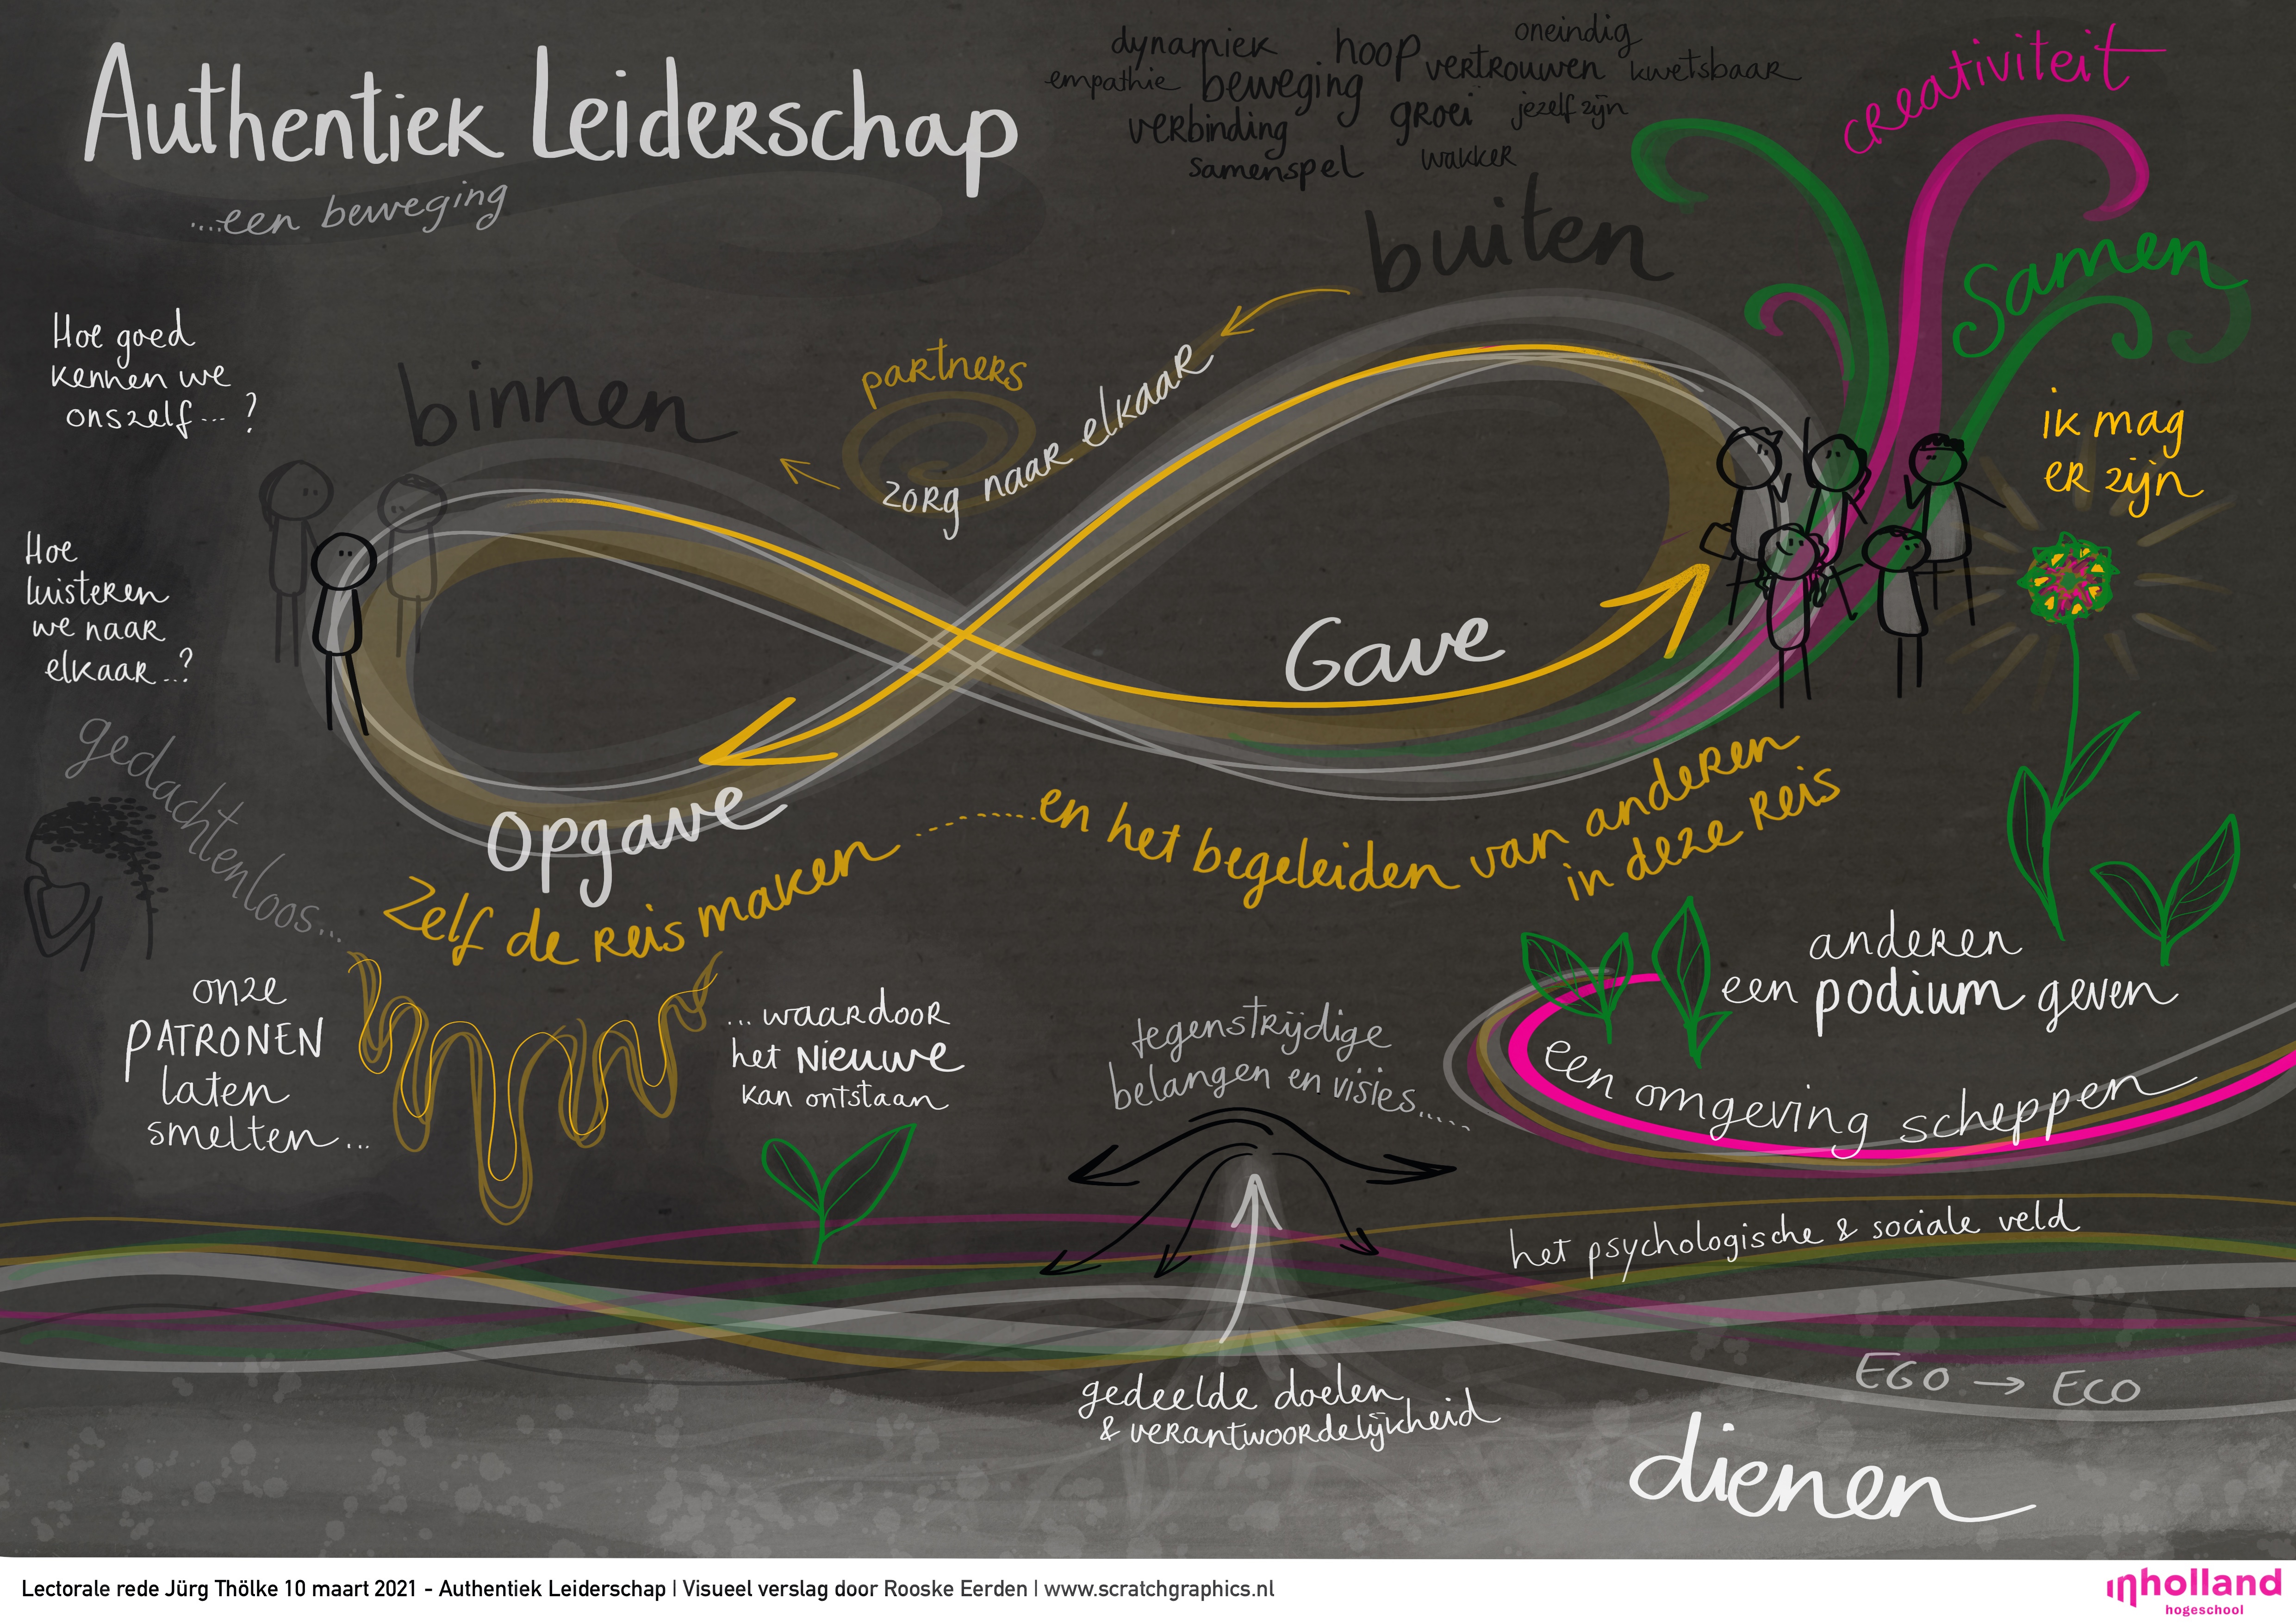 Authentiek Leiderschap
....een beweging
dynamiek hoop oneindig
empathie beweging vertrouwen kwetsbaar
verbinding groei jezelf zijn
samenspel wakker
creativiteit
samen
buiten
binnen
Hoe goed
kennen we
onszelf... ?
Hoe
luisteren
we naar
elkaar...?
partners
zorg naar elkaar
ik mag
er zijn
Gave
Opgave
gedachtenloos...
Zelf de reis maken ..........en het begeleiden van anderen
in deze reis
onze
PATRONEN
laten
smelten...
...waardoor
het Nieuwe
kan ontstaan
tegenstrijdige
belangen en visies.....
anderen
een podium geven
een omgeving scheppen
het psychologische & sociale veld
gedeelde doelen
& verantwoordelijkheid
EGO → ECO
dienen
Lectorale rede Jürg Thölke 10 maart 2021 - Authentiek Leiderschap | Visueel verslag door Rooske Eerden | www.scratchgraphics.nl
inholland
hogeschool